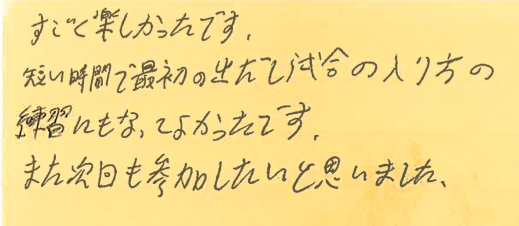 すごく楽しかったです.
短い時間で最初の出だし試合の入り方の
練習にもなってよかったです.
また次回も参加したいと思いました.